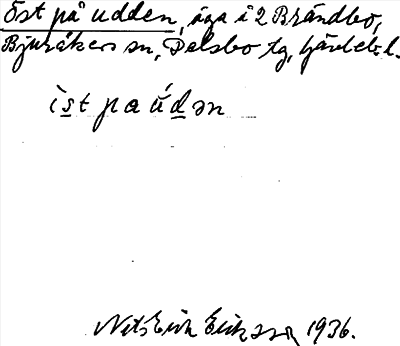 Öst på udden, äga i 2 Brändbo,
Bjuråkers sn, Delsbo tg,
ìst pa údən
Nils Erik Eriksson 1936.